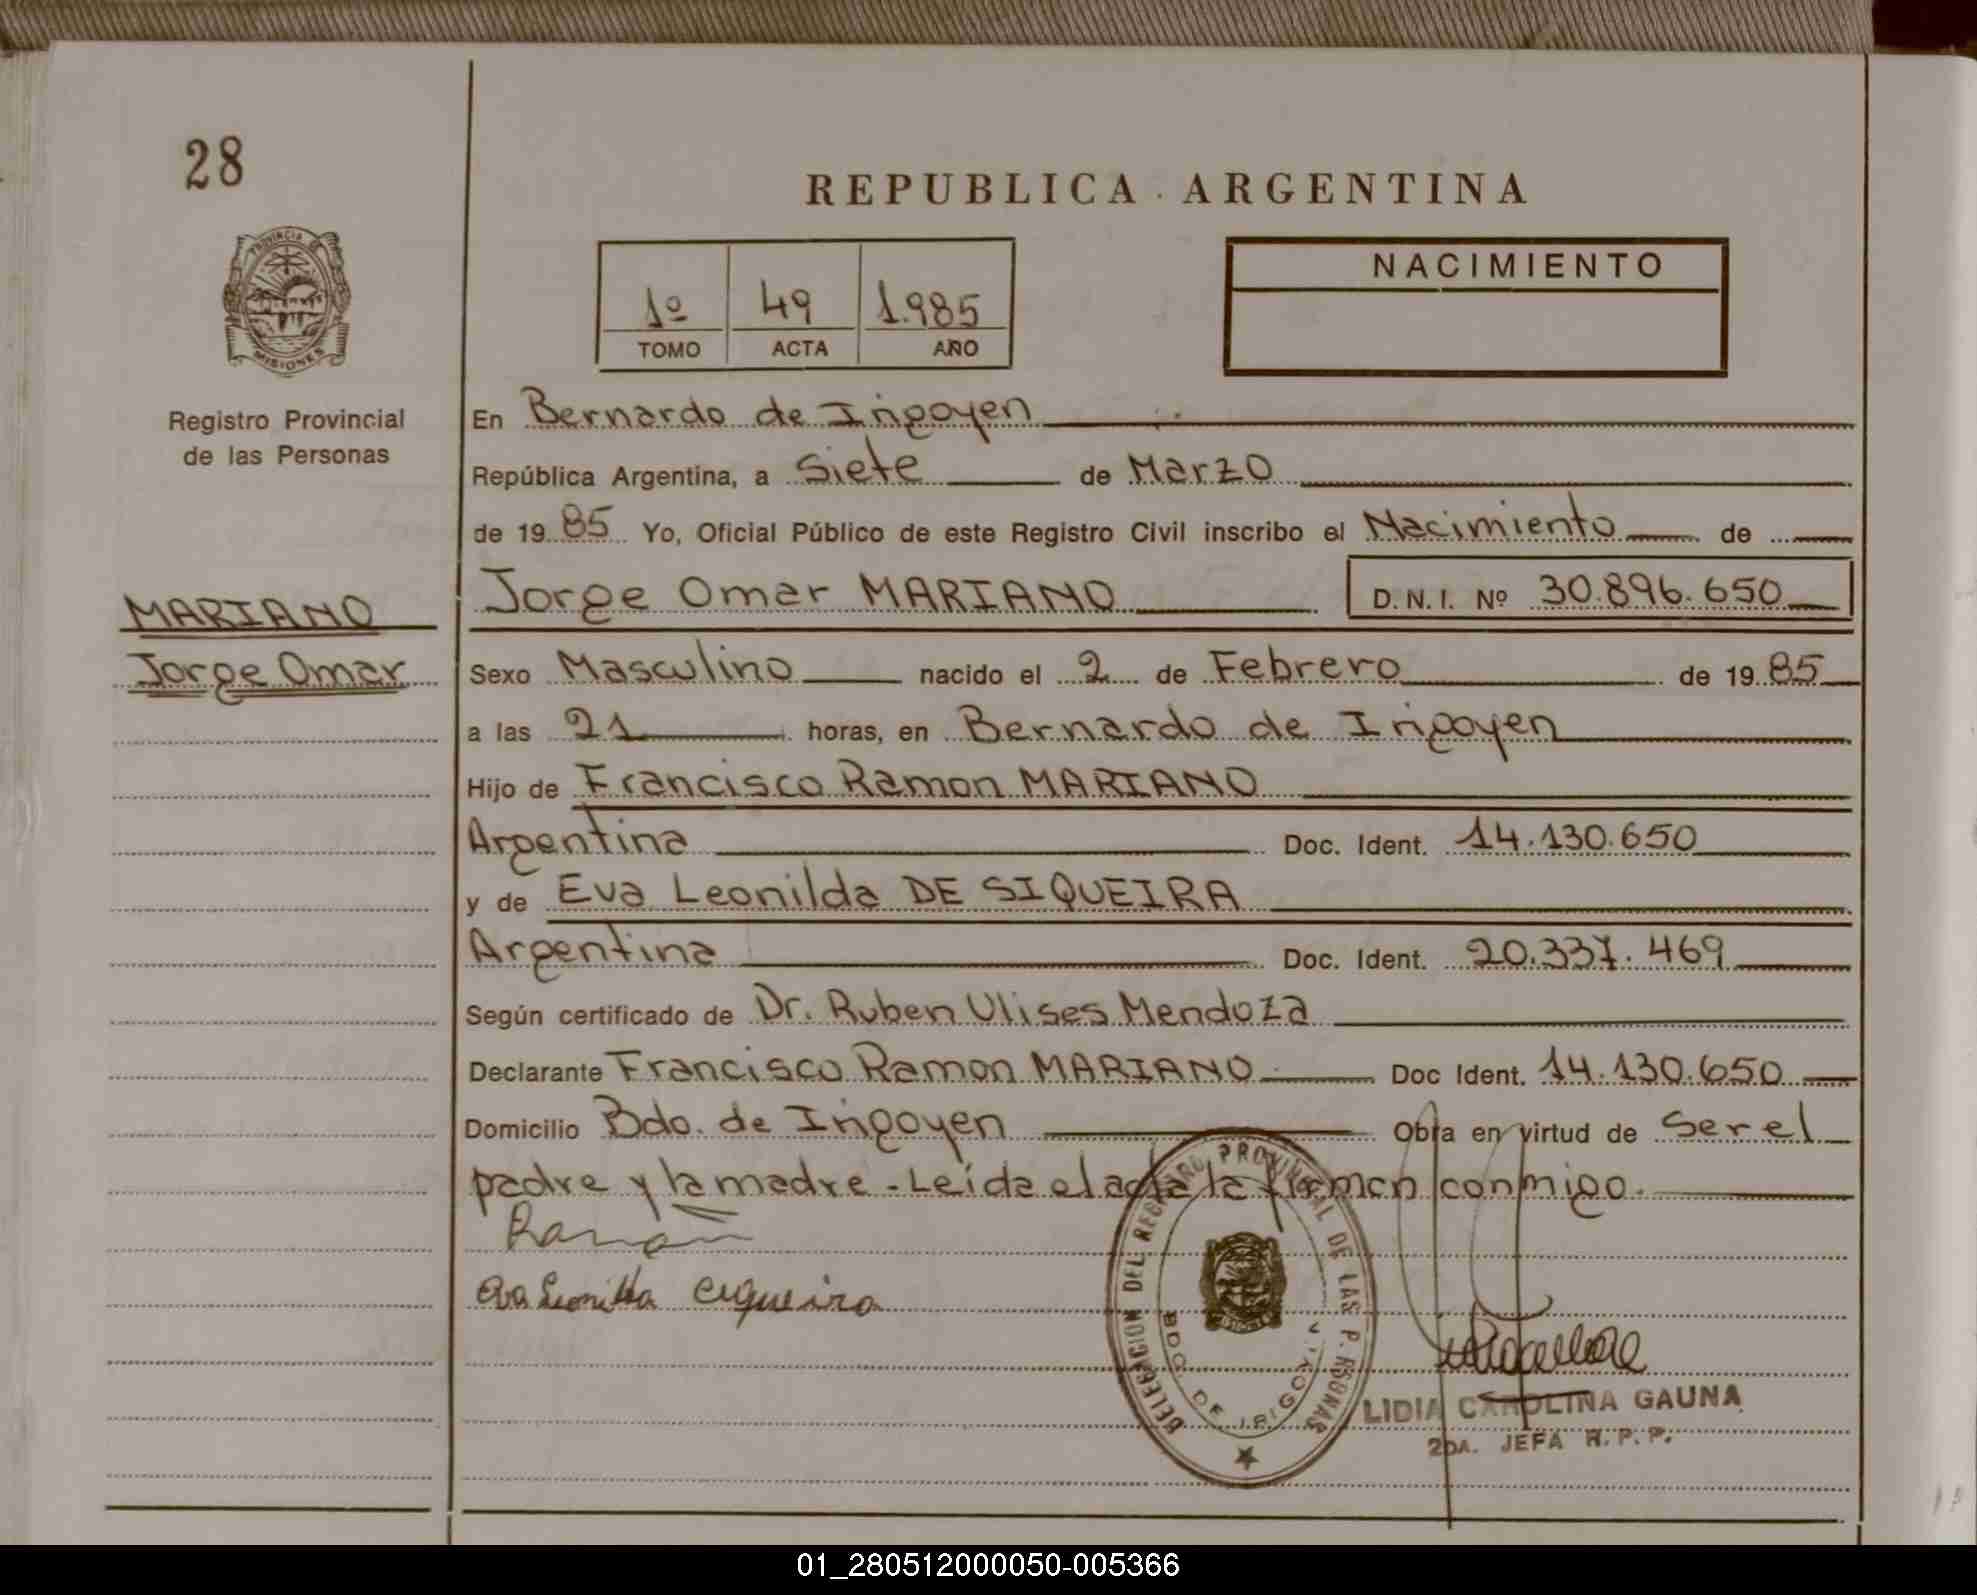 28
REPUBLICA ARGENTINA
PROVINCIA DE
MISIONES
1º 49 1.985
TOMO ACTA AÑO
NACIMIENTO
Registro Provincial
de las Personas
En Bernardo de Irigoyen
República Argentina, a Siete de Marzo
de 1985 Yo, Oficial Público de este Registro Civil inscribo el Nacimiento de
MARIANO
Jorge Omar
Jorge Omar MARIANO D.N.I. Nº 30.896.650
Sexo Masculino nacido el 2 de Febrero de 1985
a las 21 horas, en Bernardo de Irigoyen
Hijo de Francisco Ramon MARIANO
Argentina Doc. Ident. 14.130.650
y de Eva Leonilda DE SIQUEIRA
Argentina Doc. Ident. 20.337.469
Según certificado de Dr. Ruben Ulises Mendoza
Declarante Francisco Ramon MARIANO Doc Ident. 14.130.650
Domicilio Bdo. de Irigoyen Obra en virtud de Ser el
padre y la madre.- Leída el acta la firman conmigo.
Ramon
Eva Leonilda Ciqueira
DELEGACION DEL REGISTRO PROVINCIAL DE LAS PERSONAS
BDO. DE IRIGOYEN
LIDIA CAROLINA GAUNA
2DA. JEFA R.P.P.
01_280512000050-005366